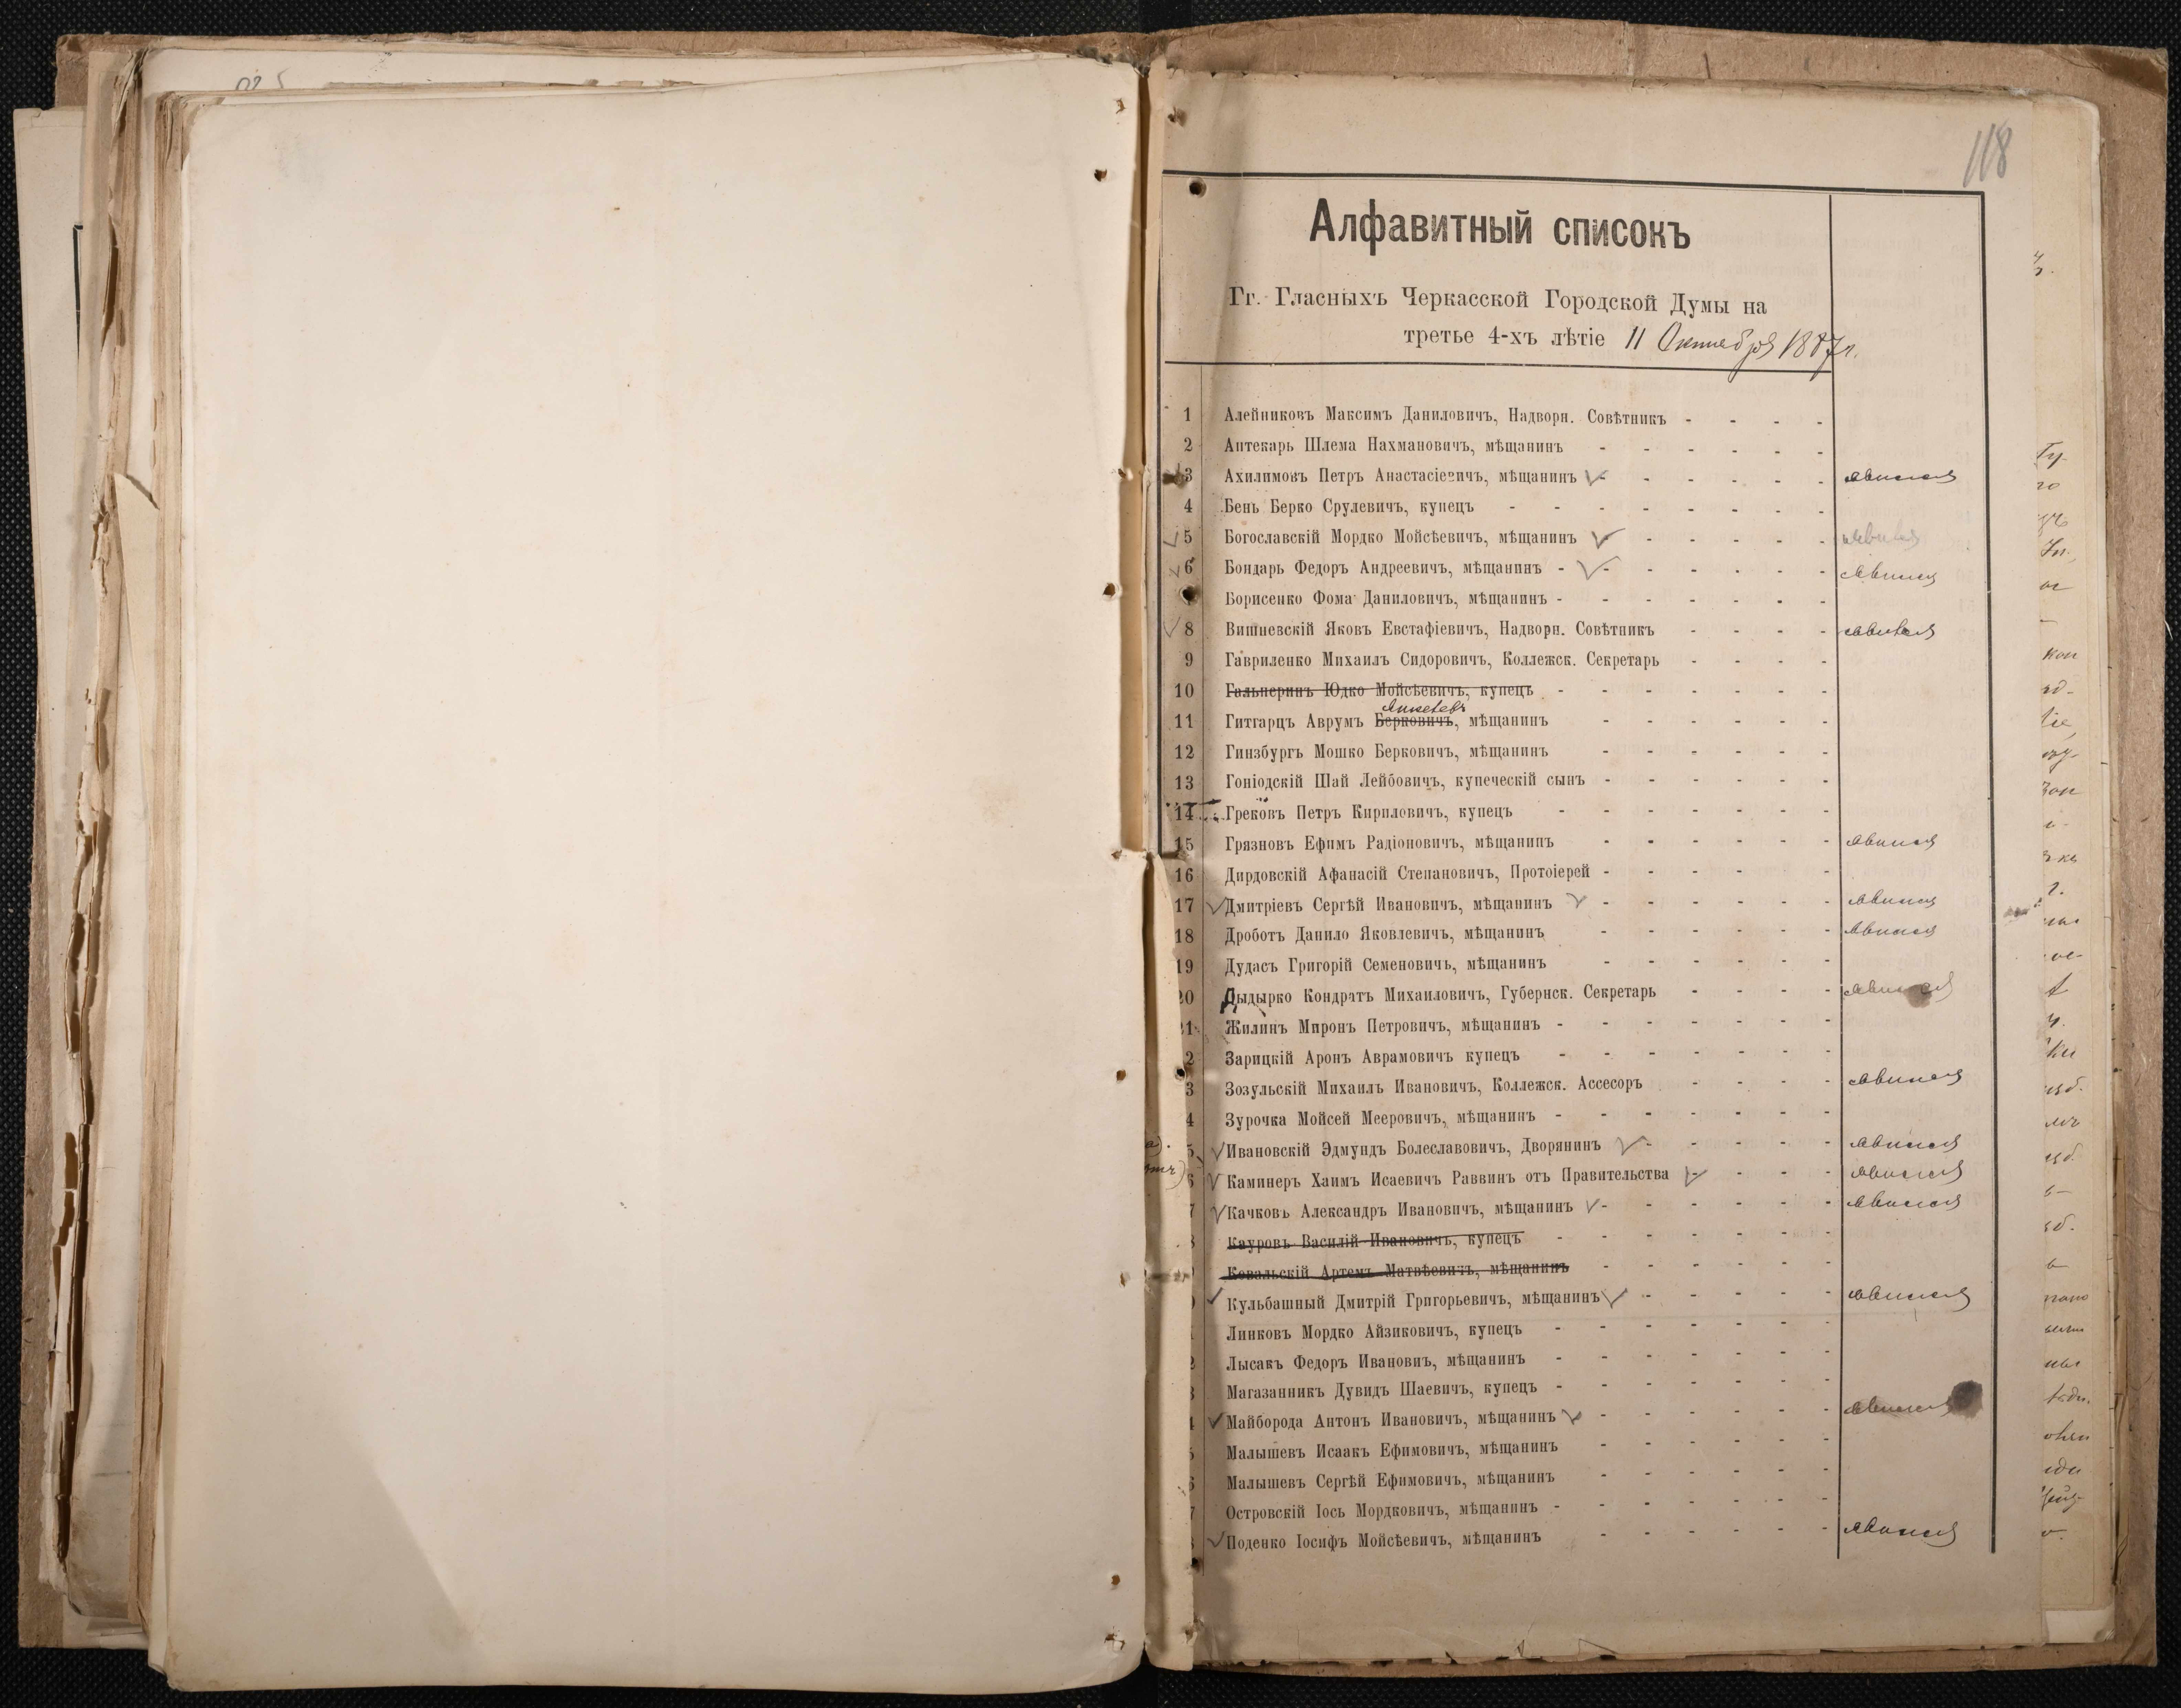 118
Алфавитный списокъ
Гг. Гласныхъ Черкасской Городской Думы на
третье 4-хъ лѣтіе 11 Октября 1887 г.
1 Алейниковъ Максимъ Даниловичъ, Надворн. Совѣтникъ - - - -
2 Аптекарь Шлема Нахмановичъ, мѣщанинъ - - - - - -
3 Ахилимовъ Петръ Анастасіевичъ, мѣщанинъ - - - - - - явился
4 Бень Берко Срулевичъ, купецъ - - - - - - - -
5 Богославскій Мордко Мойсѣевичъ, мѣщанинъ - - - - - явился
6 Бондарь Федоръ Андреевичъ, мѣщанинъ - - - - - - - явился
Борисенко Фома Даниловичъ, мѣщанинъ - - - - - - -
8 Вишневскій Яковъ Евстафіевичъ, Надворн. Совѣтникъ - - - - явился
9 Гавриленко Михаилъ Сидоровичъ, Коллежск. Секретарь - - - -
10 Гальперинъ Юдко Мойсѣевичъ, купецъ - - - - - - -
11 Гитгарцъ Аврумъ Берковичъ, мѣщанинъ - - - - - -
12 Гинзбургъ Мошко Берковичъ, мѣщанинъ - - - - - -
13 Гоніодскій Шай Лейбовичъ, купеческій сынъ - - - - - -
14 Грековъ Петръ Кириловичъ, купецъ - - - - - - -
15 Грязновъ Ефимъ Радіоновичъ, мѣщанинъ - - - - - - явился
16 Дирдовскій Афанасій Степановичъ, Протоіерей - - - - - -
17 Дмитріевъ Сергѣй Ивановичъ, мѣщанинъ - - - - - - явился
18 Дроботъ Данило Яковлевичъ, мѣщанинъ - - - - - - явился
19 Дудасъ Григорій Семеновичъ, мѣщанинъ - - - - - -
20 Дыдырко Кондратъ Михаиловичъ, Губернск. Секретарь - - - - явился
21 Жилинъ Миронъ Петровичъ, мѣщанинъ - - - - - - -
2 Зарицкій Аронъ Аврамовичъ купецъ - - - - - - -
3 Зозульскій Михаилъ Ивановичъ, Коллежск. Ассесоръ - - - - явился
4 Зурочка Мойсей Мееровичъ, мѣщанинъ - - - - - - -
5 Ивановскій Эдмундъ Болеславовичъ, Дворянинъ - - - - - явился
6 Каминеръ Хаимъ Исаевичъ Раввинъ отъ Правительства - - - - явился
7 Качковъ Александръ Ивановичъ, мѣщанинъ - - - - - - явился
Кауровъ Василій Ивановичъ, купецъ - - - - - - -
Ковальскій Артемъ Матвѣевичъ, мѣщанинъ - - - - - -
Кульбашный Дмитрій Григорьевичъ, мѣщанинъ - - - - - явился
Линковъ Мордко Айзиковичъ, купецъ - - - - - - -
Лысакъ Федоръ Ивановиъ, мѣщанинъ - - - - - - -
Магазанникъ Дувидъ Шаевичъ, купецъ - - - - - - -
Майборода Антонъ Ивановичъ, мѣщанинъ - - - - - - явился
Малышевъ Исаакъ Ефимовичъ, мѣщанинъ - - - - - -
Малышевъ Сергѣй Ефимовичъ, мѣщанинъ - - - - - -
Островскій Іось Мордковичъ, мѣщанинъ - - - - - - -
Поденко Іосифъ Мойсѣевичъ, мѣщанинъ - - - - - - явился